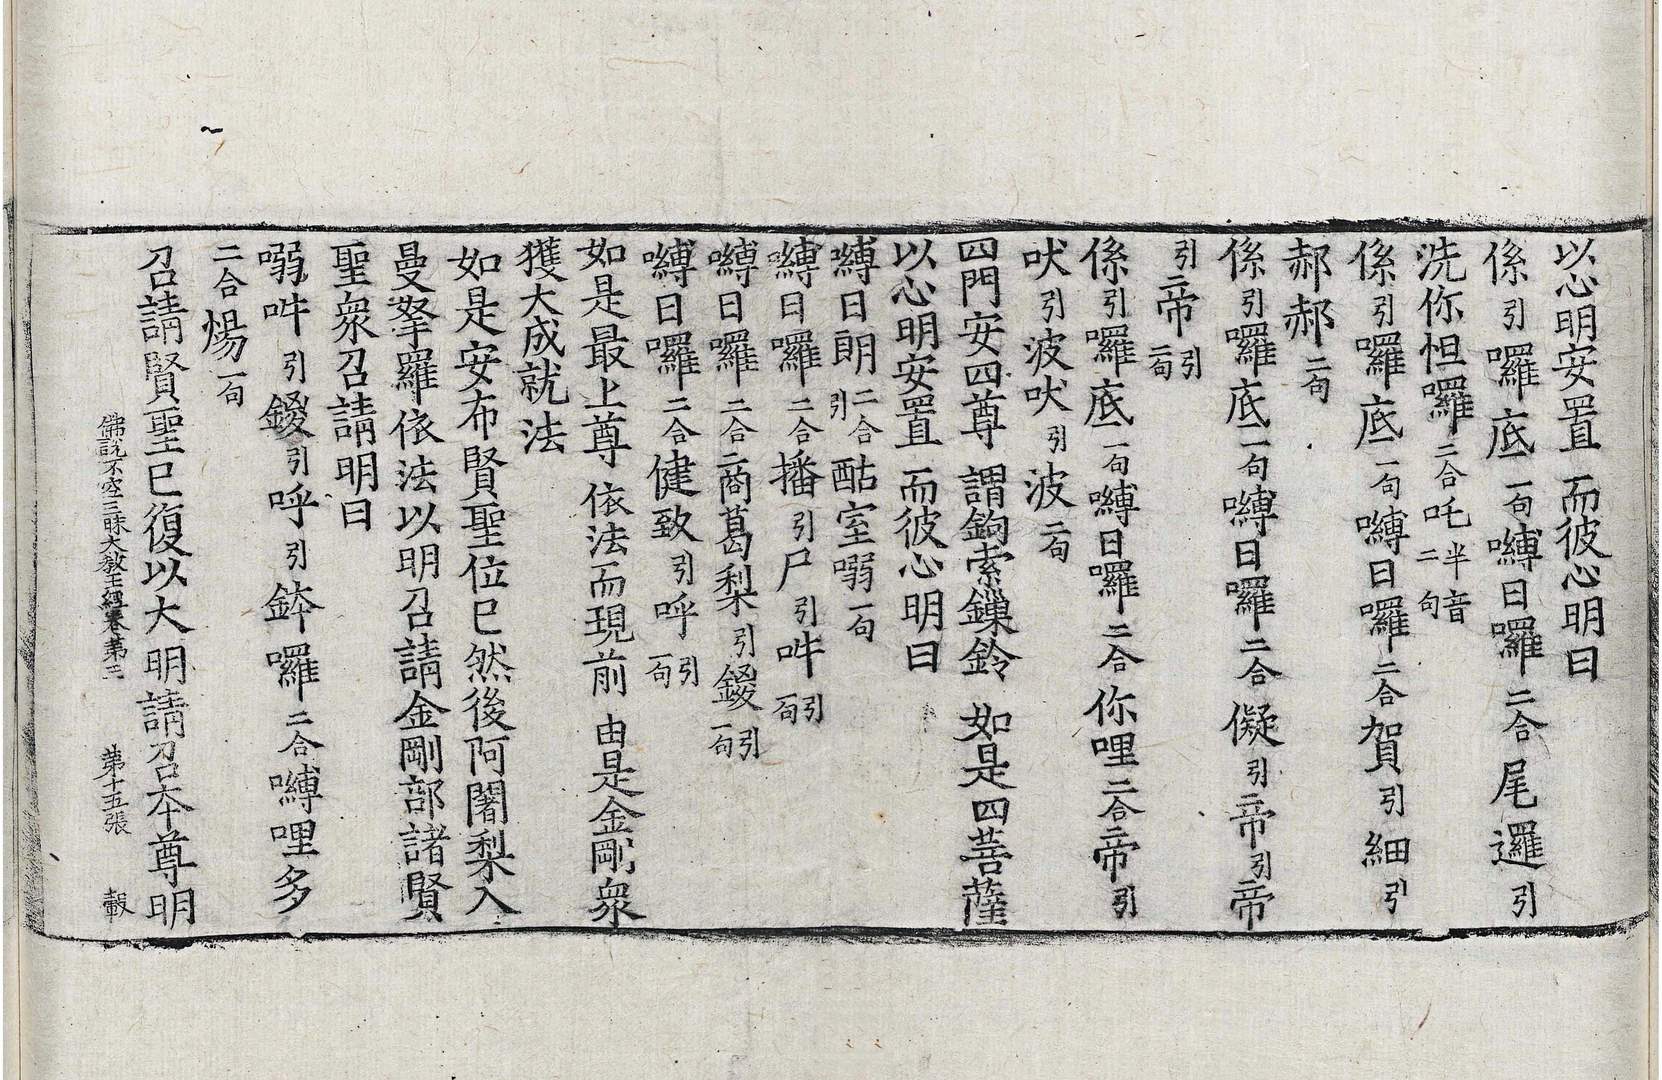 以心明安置而彼心明曰
係引囉底一句嚩日囉二合尾邏引
洗你怛囉二合吒半音二句
係引囉底一句嚩日囉二合賀引細引
郝郝二句
係引囉底一句嚩日囉二合儗引帝引帝
引帝引二句
係引囉底一句嚩日囉二合你哩二合帝引
吠引波吠引波二句
四門安四尊謂鉤索鏁鈴如是四菩薩
以心明安置而彼心明曰
嚩日朗二合引酤室弱一句
嚩日囉二合播引尸引吽引一句
嚩日囉二合商葛梨引鑁引一句
嚩日囉二合健致引呼引一句
如是最上尊依法而現前由是金剛衆
獲大成就法
如是安布賢聖位已然後阿闍梨入
曼拏羅依法以明召請金剛部諸賢
聖衆召請明曰
弱吽引鑁引呼引鉢囉二合嚩哩多
二合煬一句
召請賢聖已復以大明請召本尊明
佛說不空三昧大教王經卷第三 第十五張 轂